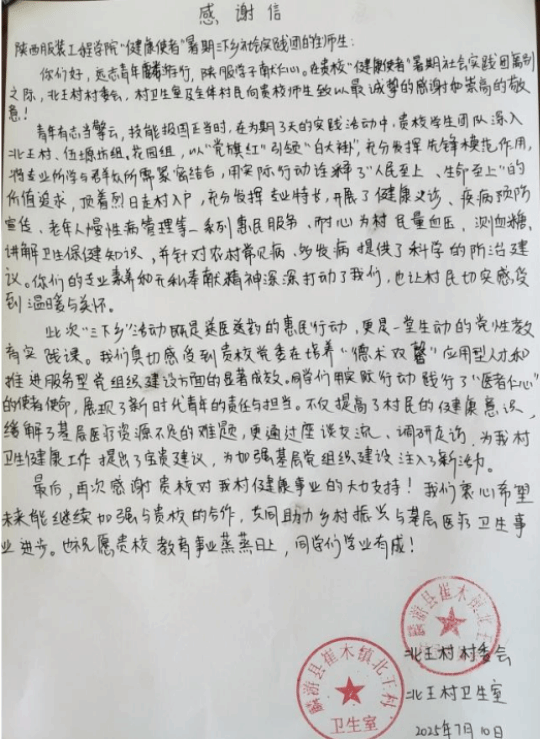 感谢信
陕西服装工程学院“健康使者”暑期三下乡社会实践团的全体师生：
你们好，远志青年麟游行，陕服学子献仁心。在贵校“健康使者”暑期社会实践团离别
之际，北王村村委会，村卫生室及全体村民向贵校师生致以最诚挚的感谢和崇高的敬
意！
青年有志当擎云，技能报国正当时，在为期3天的实践活动中，贵校学生团队深入
北王村、伍塬坊组、花园组，以“党旗红”引领“白大褂”，充分发挥先锋模范作用，
将专业所学与群众所需紧密结合，用实际行动诠释了“人民至上、生命至上”的
价值追求，顶着烈日走村入户，充分发挥专业特长，开展了健康义诊、疾病预防
宣传、老年人慢性病管理等一系列惠民服务、耐心为村民量血压、测血糖，
讲解卫生保健知识，并针对农村常见病、多发病提供了科学的防治建
议。你们的专业素养和无私奉献精神深深打动了我们，也让村民切实感受
到温暖与关怀。
此次“三下乡”活动既是送医送药的惠民行动，更是一堂生动的党性教
育实践课。我们真切感受到贵校党委在培养“德术双馨”应用型人才和
推进服务型党组织建设方面的显著成效。同学们用实际行动践行了“医者仁心”
的使者使命，展现了新时代青年的责任与担当。不仅提高了村民的健康意识，
缓解了基层医疗资源不足的难题，更通过座谈交流、调研走访，为我村
卫生健康工作提出了宝贵建议，为加强基层党组织建设注入了新活力。
最后，再次感谢贵校对我村健康事业的大力支持！我们衷心希望
未来能继续加强与贵校的合作，共同助力乡村振兴与基层医疗卫生事
业进步。也祝愿贵校教育事业蒸蒸日上，同学们学业有成！
麟游县崔木镇北王村
北王村村委会
麟游县崔木镇北王村
卫生室
北王村卫生室
2025年7月10日